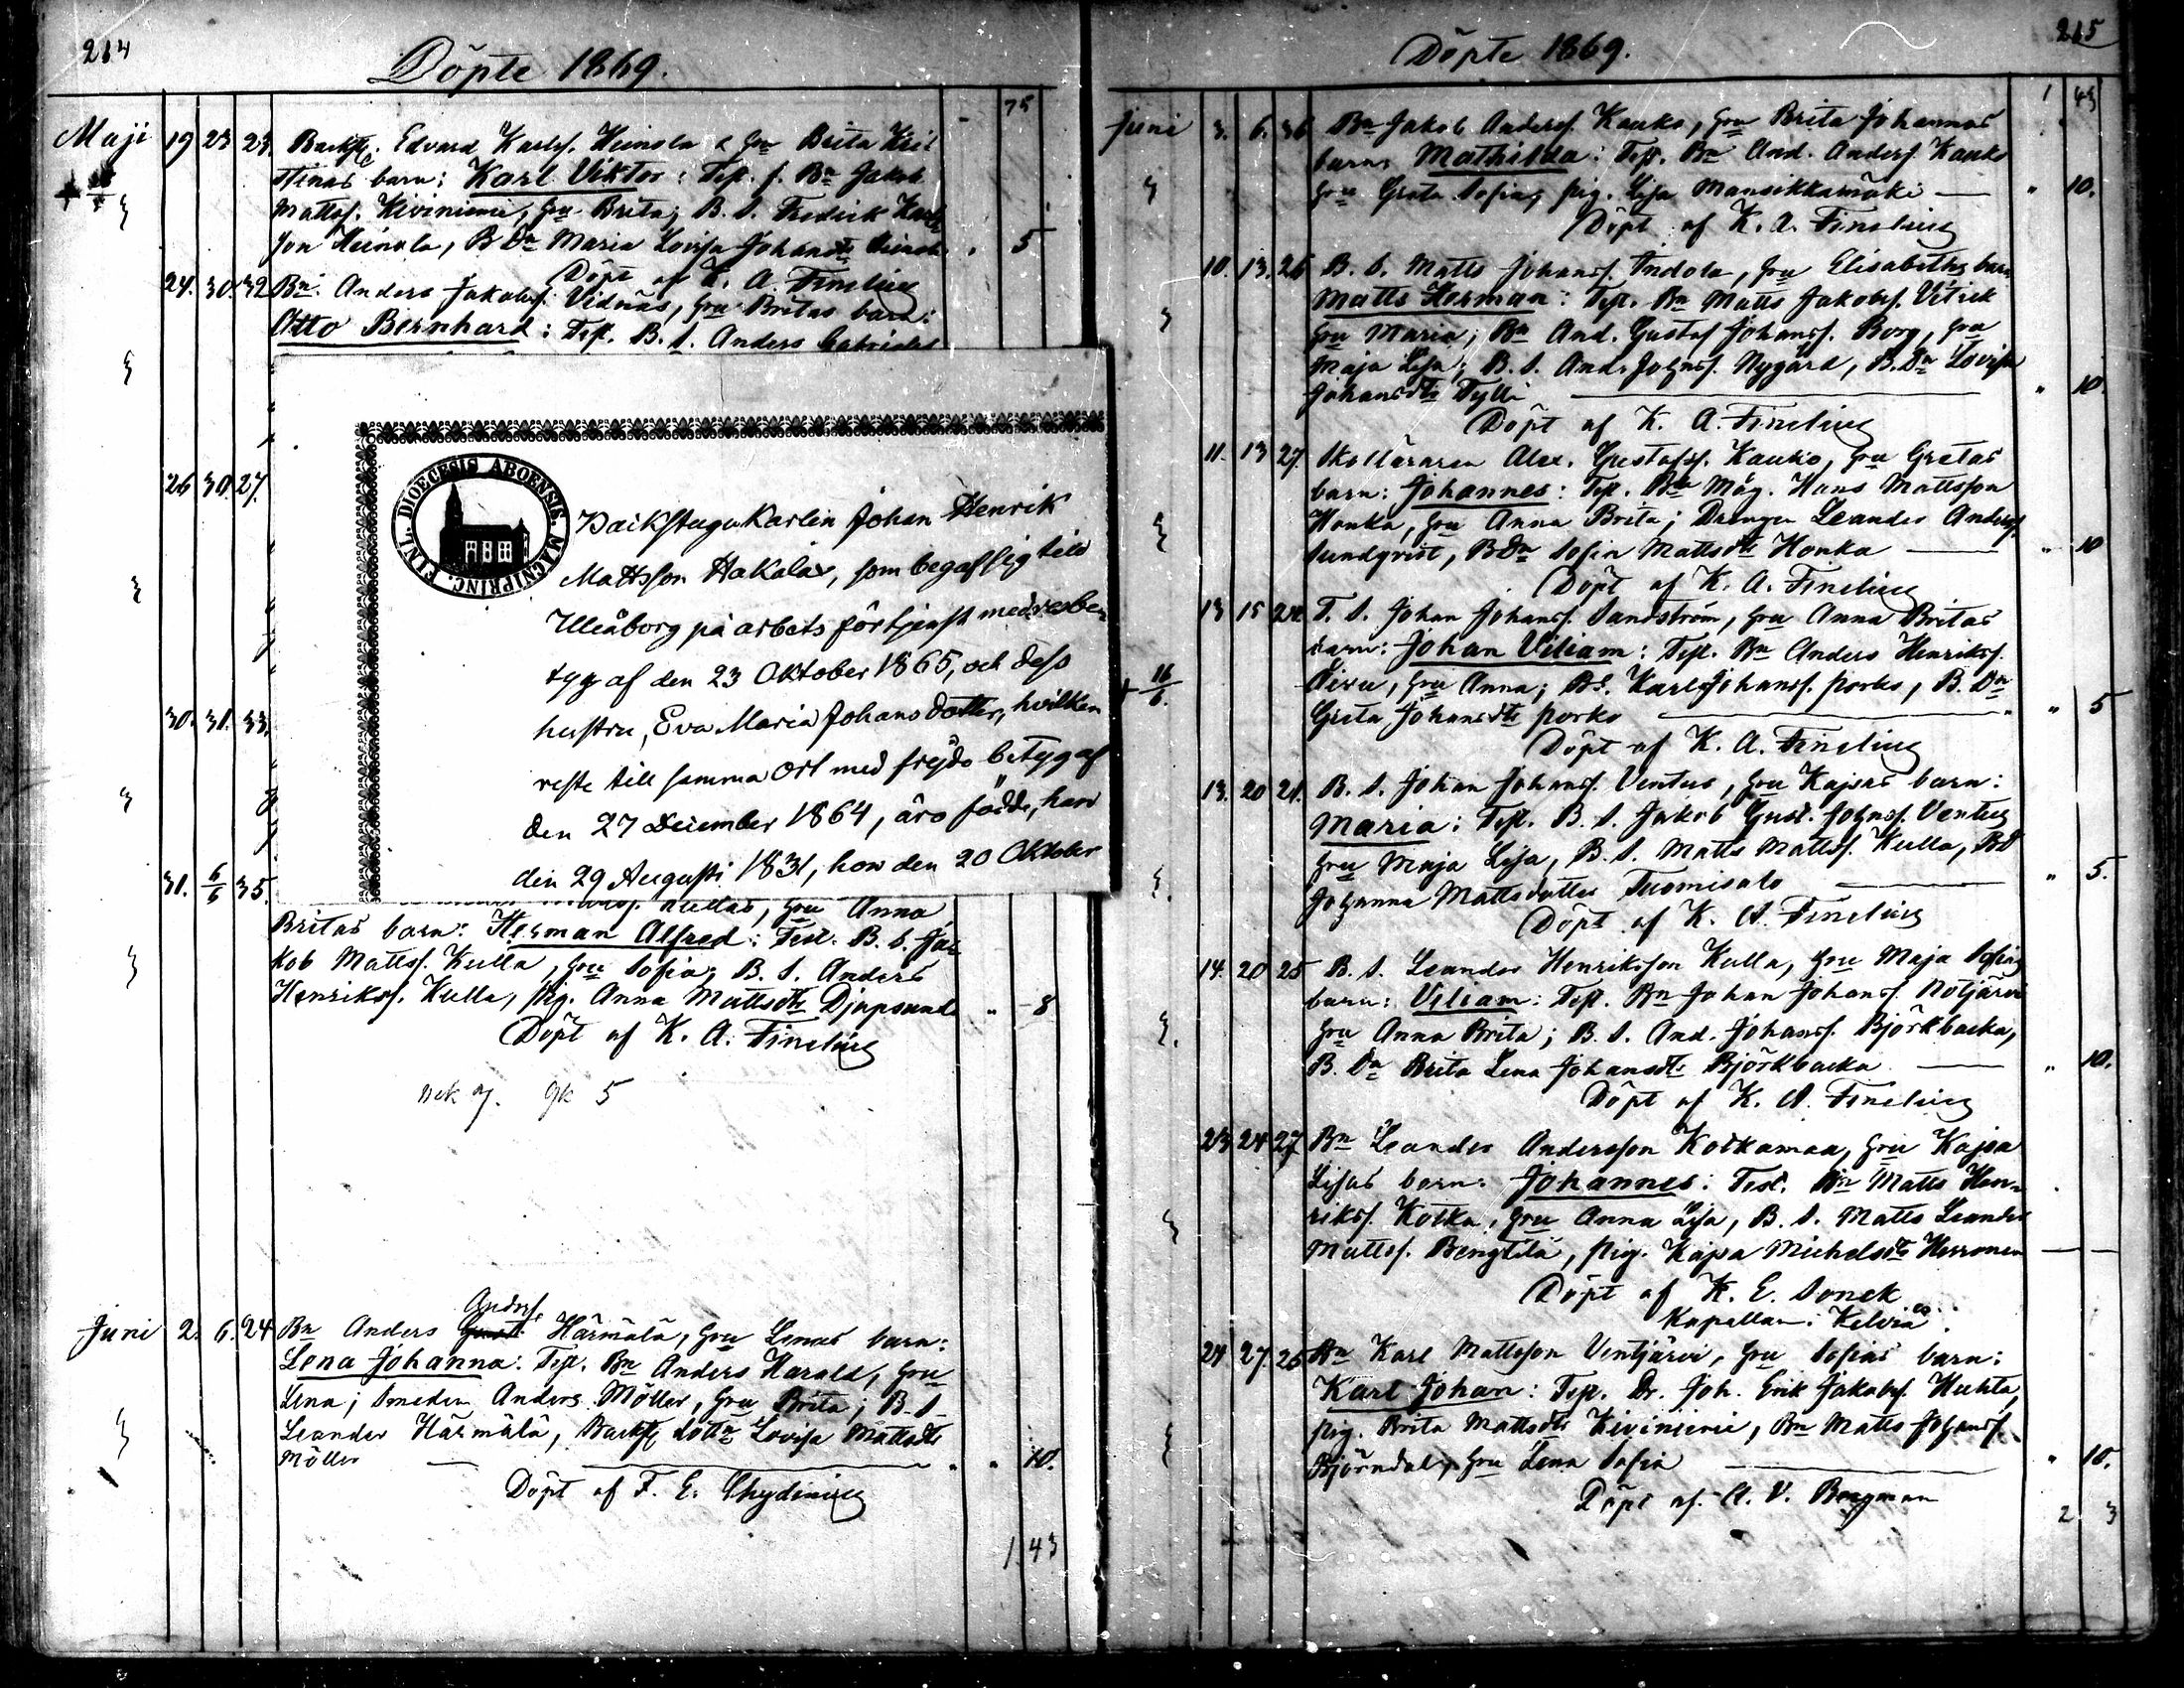 264
Döpte 1869.
75
Maji 19 23 23. Backst. Edvard Karlss. Heinola & hru Brita Kris
tinas barn: Karl Viktor: Test. f. Bn Jakob
Mattss. Kiviniemi, hru Brita; B. S. Fredrik Karls
son Heinola, B Dn Maria Lovisa Johansdtr Heinola " 5
Döpt af K. A. Finelius
24. 30. 32 Bn. Anders Jakobss. Vidnäs, hru Britas barn:
Otto Bernhard: Test. B. S. Anders Gabriels
26 30. 27.
30. 31. 33.
31. 6/6 35.
FINL. DIOECESIS ABOENSIS. MAGNIPRINC.
Backstugukarlen Johan Henrik
Mattsson Hakalax, som begaf sig till
Uleåborg på arbets förtjenst med resbe-
tyg af den 23 Oktober 1865, och dess
hustru, Eva Maria Johansdotter, hvilken
reste till samma ort med frejds betyg af
den 27 December 1864, äro födde, han
den 29 Augusti 1831, hon den 20 Oktober
Kullas, hru Anna
Britas barn: Herman Alfred: Test. B. S. Ja-
kob Mattss. Kulla, hru Sofia; B. S. Anders
Henrikss. Kulla, pig. Anna Mattsdtr Djupsund " 8
Döpt af K. A. Finelius
5
Anderss.
Juni 2. 6. 24 Bn Anders Härmälä, hru Lenas barn:
Lena Johanna: Test. Bn Anders Harald, hru
Lena; Smeden Anders Möller, hru Brita; B. S.
Leander Härmälä, Backst. dottn Lovisa Mattsdtr
Möller " " 10.
Döpt af F. E. Chydenius
1. 43
Döpte 1869.
265
1 43
Juni 3. 6. 36 Bn Jakob Anderss. Kauko, hru Brita Johannas
barn: Mathilda: Test. Bn And. Anderss. Kauko
hru Greta Sofia, pig. Lisa Mansikkamäki " 10.
Döpt af K. A. Finelius
10. 13. 26 B. S. Matts Johanss. Indola, hru Elisabeths barn
Matts Herman: Test. Bn Matts Jakobss. Vitick
hru Maria; Bn And. Gustaf Johanss. Borg, hru
Maja Lisa; B. S. And. Johnss. Nygård, B. Dn Lovisa
Johansdtr Tylli " 10.
Döpt af K. A. Finelius
11. 13 27. Skolläraren Alex. Gustafss. Kauko, hru Gretas
barn: Johannes: Test. Bn Måg. Hans Mattsson
Honka, hru Anna Brita; Drengen Leander Anderss.
Sundqvist, B Dn Sofia Mattsdtr Honka " 10
Döpt af K. A. Finelius
13 15 24. T. S. Johan Johanss. Sandström, hru Anna Britas
barn: Johan Viliam: Test. Bn Anders Henrikss.
+ 16/6. hru Anna; BS. Karl Johanss. Porko, B. Dn
Greta Johansdtr Porko " 5
Döpt af K. A. Finelius
13. 20 21. B. S. Johan Johanss. Ventus, hru Kajsas barn:
Maria: Test. B. S. Jakob Gust. Johnss. Ventus
hru Maja Lisa, B. S. Matts Mattss. Kulla, BD
Johanna Mattsdotter Tuomisalo " 5.
Döpt af K. A. Finelius
14. 20 25 B. S. Leander Henriksson Kulla, hru Maja Sofias
barn: Viliam: Test. Bn Johan Johanss. Notjärvi
hru Anna Brita; B. S. And. Johanss. Björkbacka,
B. Dn Brita Lena Johansdtr Björkbacka " 10.
Döpt af K. A. Finelius
23 24 27 Bn Leander Andersson Kotkamaa, hru Kajsa
Lisas barn: Johannes: Test. Bn Matts Hen-
rikss. Kotka, hru Anna Lisa, B. S. Matts Leander
Mattss. Bengtilä, pig. Kajsa Michelsdtr Herronen
Döpt af K. E. Sonck
Kapellan i Kelviå.
24 27. 25 Bn Karl Mattsson Ventjärvi, hru Sofias barn:
Karl Johan: Test. Dr. Joh. Erik Jakobss. Huhta,
pig. Brita Mattsdtr Kiviniemi, Bn Matts Johanss.
Björndal, hru Lena Sofia " 10.
Döpt af A. V. Bergman
2. 3